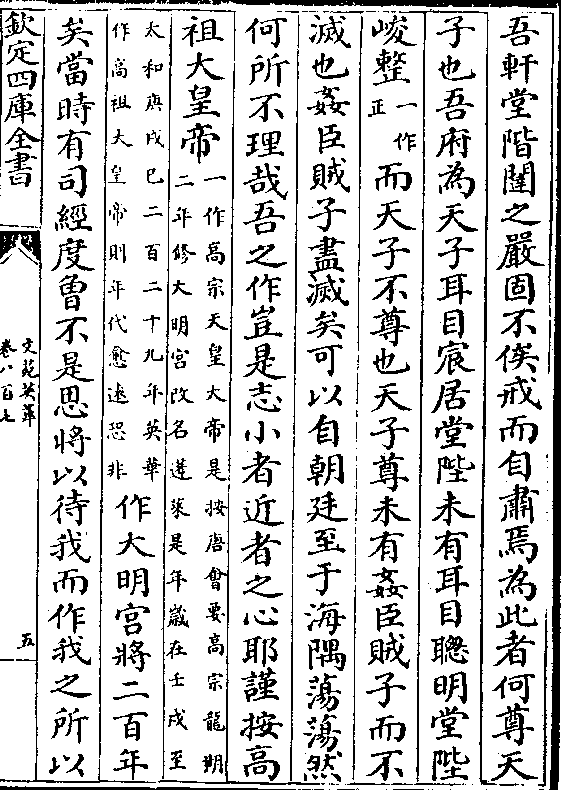 吾軒堂階闥之嚴固不俟戒而自肅焉為此者何尊天
子也吾府為天子耳目宸居堂陛未有耳目聰明堂陛
峻整一作正而天子不尊也天子尊未有姦臣賊子而不
滅也姦臣賊子盡滅矣可以自朝廷至于海隅蕩蕩然
何所不理哉吾之作豈是志小者近者之心耶謹按高
祖大皇帝一作髙宗天皇大帝是按唐會要高宗龍朔
二年修大明宮改名蓬萊是年歲在壬戌至
太和庚戌巳二百二十九年英華
作高祖大皇帝則年代愈逺恐非作大明宮將二百年
矣當時有司經度曾不是思將以待我而作我之所以
欽定四庫全書
文苑英華
卷八百七
五